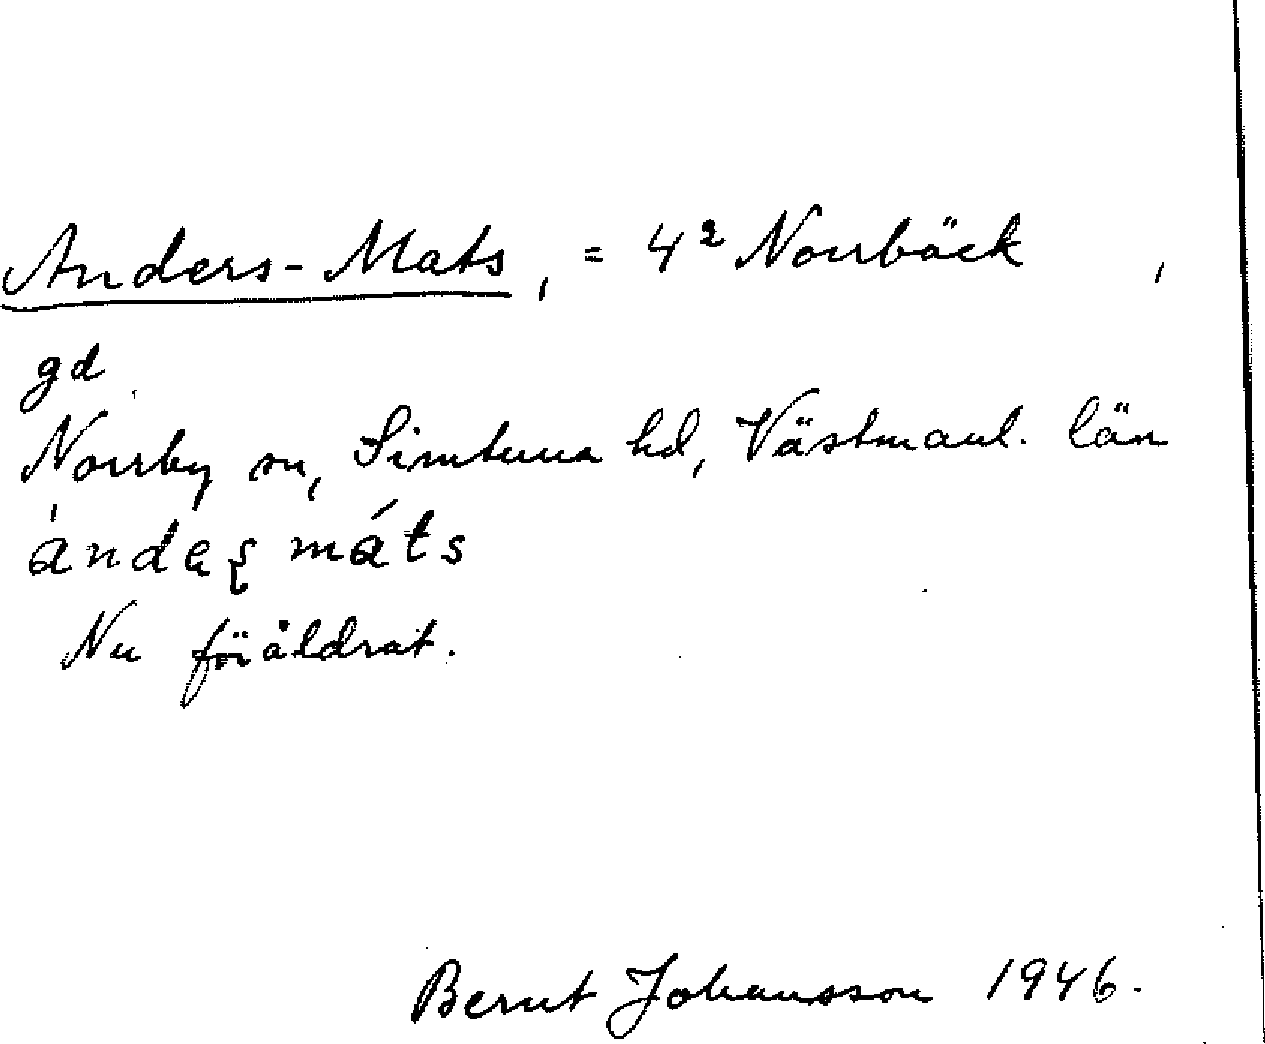 Anders-Mats, = 4² Norrbäck,
gd
Norrby sn, Simtuna hd, Västmanl. län
àndes máts
Nu föråldrat.
Bernt Johansson 1946.